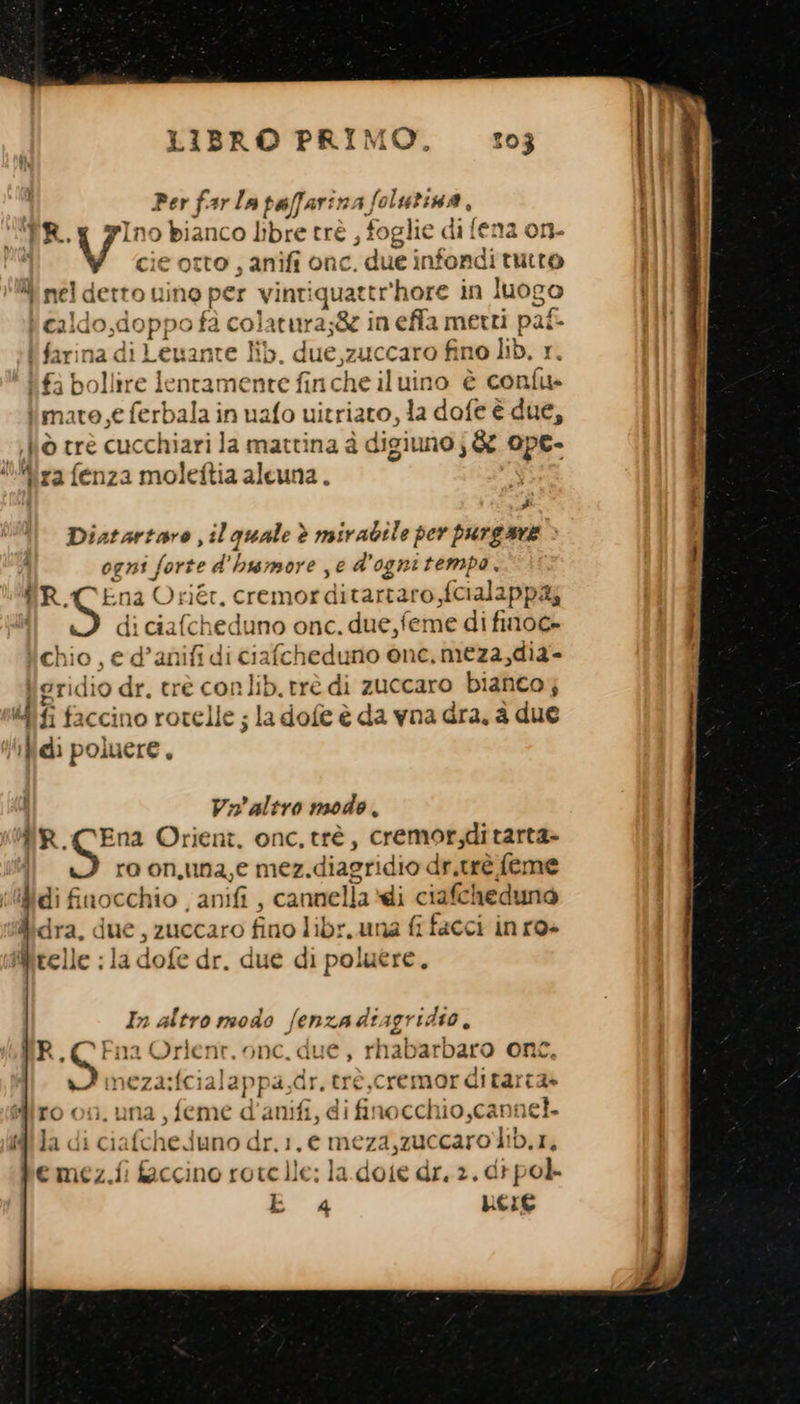 LIBRO PRIMO. 103
Per far la paſſarina ſolutiua,
R. VIno bianco libre trè, foglie di ſena on-
cie otto, aniſi onc. due infondi tutto
nel detto uino per vintiquattr'hore in luogo
caldo, doppo fà colatura; & in eſſa metti paſ-
ſarina di Leuante lib. due, zuccaro fino lib. 1.
fà bollire lentamente finche il uino è conſu-
mato, e ſerbala in uaſo uitriato, la doſe è due,
ò trè cucchiari la mattina à digiuno; & ope-
ra ſenza moleſtia alcuna.
Diatartaro, il quale è mirabile per purgare
ogni ſorte d'humore, e d'ogni tempo.
R. SEna Oriẽt. cremor di tartaro, ſcialappa,
di ciaſcheduno onc. due, ſeme di finoc-
chio, e d'aniſi di ciaſcheduno onc. meza, dia-
gridio dr. trè con lib. trè di zuccaro bianco;
ſi faccino rotelle; la doſe è da vna dra. à due
di poluere.
Vn'altro modo.
R. SEna Orient. onc. trè, cremor, di tarta-
ro on. una, e mez. diagridio dr. trè ſeme
di finocchio, aniſi, cannella di ciaſcheduno
dra. due, zuccaro fino libr. una ſi facci in ro-
telle: la doſe dr. due di poluere.
In altro modo ſenza diagridio.
R. SEna Orient. onc. due, rhabarbaro onc.
meza: ſcialappa, dr. trè, cremor di tarta-
ro on. una, ſeme d'aniſi, di finocchio, cannel-
la di ciaſcheduno dr. 1. e meza, zuccaro lib. 1.
e mez. ſi faccino rotelle: la doſe dr. 2. di pol-
E 4 uere